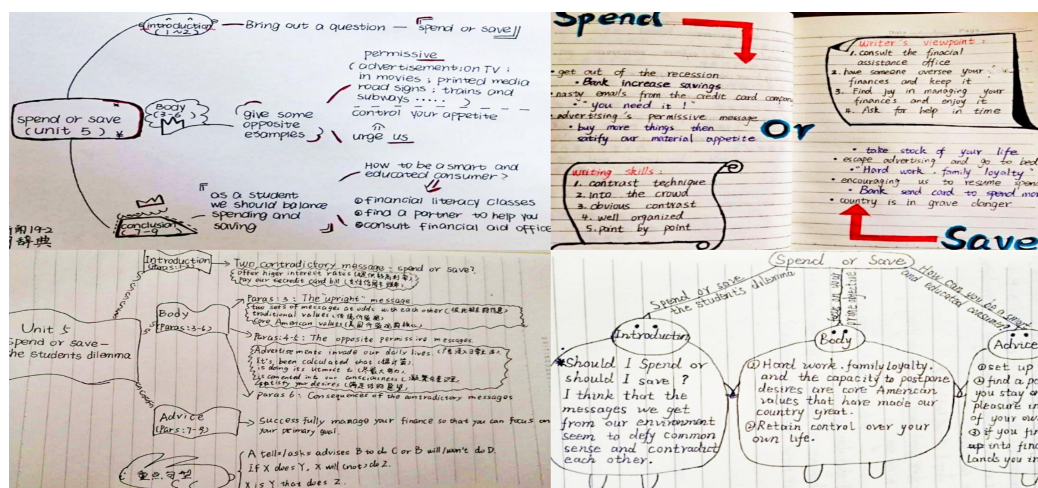 introduction
(1~2)
Bring out a question — 『spend or save』
permissive
(advertisement: on TV;
in movies; printed media
road signs; trains and
subways ..... )
control your appetite
spend or save
(unit 5)
Body
(3-6)
give some
opposite
esamples
urge us
How to be a smart and
educated consumer?
①financial literacy classes
②find a partner to help you
③consult financial aid office
『as a student
we should balance
spending and
saving』
conclusion
7-9
词典
Spend
• get out of the recession
• Bank increase savings
• nasty emails from the credit card compan
• "you need it!"
• advertising's permissive message
• buy more things then
satify our material appetite
Or
writing skills:
1. contrast technique
2. into the crowd
3. obvious contrast
4. well organized
5. point by point
writer's viewpoint:
1. consult the finacial
assistance office
2. have someone oversee your
finances and keep it
3. Find joy in managing your
finances and enjoy it
4. Ask for help in time
• take stock of your life
• escape advertising and go to bed
• "Hard work, family loyalty"
• encouraging us to resume spen
• Bank send card to spend mo
• country is in grave danger
Save
Introduction
(Paras:1-2)
Two contradictory message: spend or save?
offer higer interest rates
Pay our
credit card bill
Unit 5
Spend or save—
the students dilemma
Body
(Paras:3-6)
Paras:3: The "upright" message
two sets of messages at odds with each other
traditional values
core American values
Paras:4-5: The opposite permissive messages
Advertisements invade our daily lives
It's been calculated that
is doing its utmost t
is cemented into our consciousness
satisfy your desires
Paras 6: Consequences of the contradictory messages
Advice
(Pars:7-9)
Successfully manage your finance so that you can focus on
your primary goal.
重点句型
A tells/asks advises B to do C or B will/won't do D.
If X does Y, X will (not) do Z.
X is Y that does Z.
Spend or Save
Spend or save
the student's dilemma
How can you be a smart
and educated
consumer?
Introduction
Body
Advice
Should I Spend or
should I save ?
I think that the
messages we get
from our environment
seem to defy common
sense and contradict
each other.
① Hard work, family loyalty,
and the capacity to postpone
desires are core American
values that have made our
country great.
② Retain control over your
own life.
① set up
② find a pa
you stay
pleasure in
of your ow
③ if you fin
up into fin
lands you in